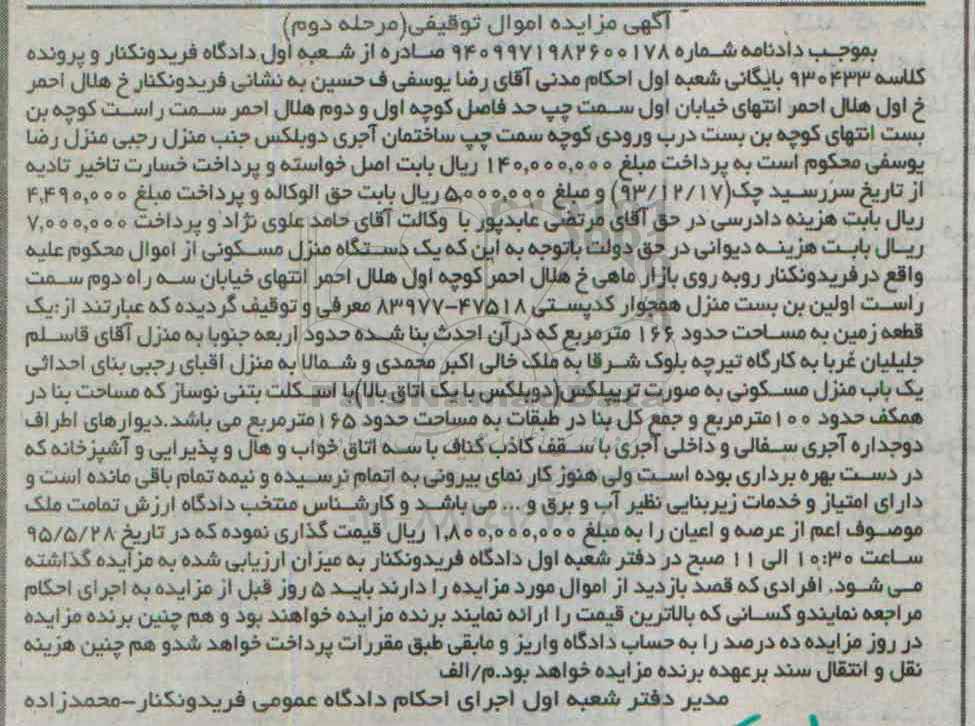 آگهی مزایده اموال توقیفی(مرحله دوم)
بموجب دادنامه شماره ۹۴۰۹۹۷۱۹۸۲۶۰۰۱۷۸ صادره از شعبه اول دادگاه فریدونکنار و پرونده
کلاسه ۹۳۰۴۳۳ بایگانی شعبه اول احکام مدنی آقای رضا یوسفی ف حسین به نشانی فریدونکنار خ هلال احمر
خ اول هلال احمر انتهای خیابان اول سمت چپ حد فاصل کوچه اول و دوم هلال احمر سمت راست کوچه بن
بست انتهای کوچه بن بست درب ورودی کوچه سمت چپ ساختمان آجری دوبلکس جنب منزل رجبی منزل رضا
یوسفی محکوم است به پرداخت مبلغ ۱۴۰,۰۰۰,۰۰۰ ریال بابت اصل خواسته و پرداخت خسارت تاخیر تادیه
از تاریخ سررسید چک(۹۳/۱۲/۱۷) و مبلغ ۵,۰۰۰,۰۰۰ ریال بابت حق الوکاله و پرداخت مبلغ ۴,۴۹۰,۰۰۰
ریال بابت هزینه دادرسی در حق آقای مرتضی عابدپور با وکالت آقای حامد علوی نژاد و پرداخت ۷,۰۰۰,۰۰۰
ریال بابت هزینه دیوانی در حق دولت باتوجه به این که یک دستگاه منزل مسکونی از اموال محکوم علیه
واقع درفریدونکنار روبه روی بازار ماهی خ هلال احمر کوچه اول هلال احمر انتهای خیابان سه راه دوم سمت
راست اولین بن بست منزل همجوار کدپستی ۴۷۵۱۸-۸۳۹۷۷ معرفی و توقیف گردیده که عبارتند از:یک
قطعه زمین به مساحت حدود ۱۶۶ مترمربع که درآن احدث بنا شده حدود اربعه جنوبا به منزل آقای قاسلم
جلیلیان غربا به کارگاه تیرچه بلوک شرقا به ملک خالی اکبر محمدی و شمالا به منزل اقبای رجبی بنای احداثی
یک باب منزل مسکونی به صورت تریپلکس(دوبلکس با یک اتاق بالا)با اسکلت بتنی نوساز که مساحت بنا در
همکف حدود ۱۰۰مترمربع و جمع کل بنا در طبقات به مساحت حدود ۱۶۵مترمربع می باشد.دیوارهای اطراف
دوجداره آجری سفالی و داخلی آجری با سقف کاذب کناف با سه اتاق خواب و هال و پذیرایی و آشپزخانه که
در دست بهره برداری بوده است ولی هنوز کار نمای بیرونی به اتمام نرسیده و نیمه تمام باقی مانده است و
دارای امتیاز و خدمات زیربنایی نظیر آب و برق و ... می باشد و کارشناس منتخب دادگاه ارزش تمامت ملک
موصوف اعم از عرصه و اعیان را به مبلغ ۱,۸۰۰,۰۰۰,۰۰۰ ریال قیمت گذاری نموده که در تاریخ ۹۵/۵/۲۸
ساعت ۱۰:۳۰ الی ۱۱ صبح در دفتر شعبه اول دادگاه فریدونکنار به میزان ارزیابی شده به مزایده گذاشته
می شود. افرادی که قصد بازدید از اموال مورد مزایده را دارند باید ۵ روز قبل از مزایده به اجرای احکام
مراجعه نمایندو کسانی که بالاترین قیمت را ارائه نمایند برنده مزایده خواهند بود و هم چنین برنده مزایده
در روز مزایده ده درصد را به حساب دادگاه واریز و مابقی طبق مقررات پرداخت خواهد شدو هم چنین هزینه
نقل و انتقال سند برعهده برنده مزایده خواهد بود.م/الف
مدیر دفتر شعبه اول اجرای احکام دادگاه عمومی فریدونکنار-محمدزاده